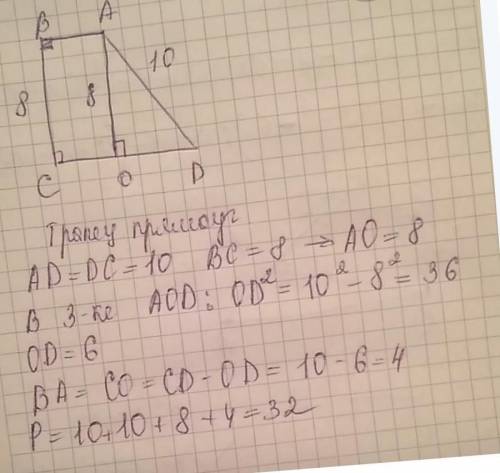 B A
10
8 8
C O D
Трапец прямоуг
AD = DC = 10 BC = 8 → AO = 8
В 3-ке AOD: OD² = 10² - 8² = 36
OD = 6
BA = CO = CD - OD = 10 - 6 = 4
P = 10 + 10 + 8 + 4 = 32